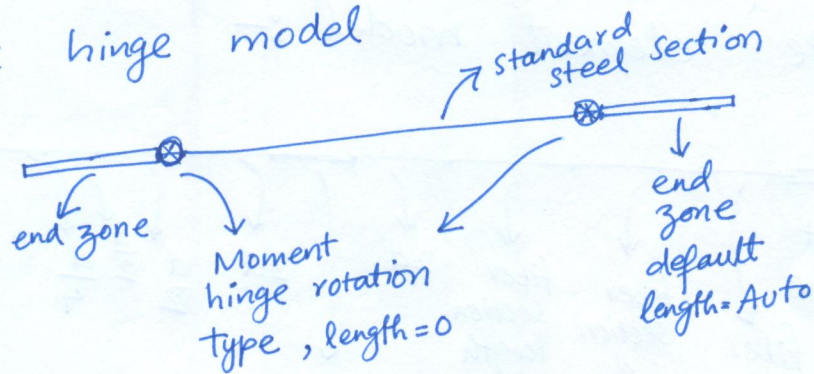 : hinge model
standard
steel section
end zone
Moment
hinge rotation
type, length=0
end
zone
default
length=Auto